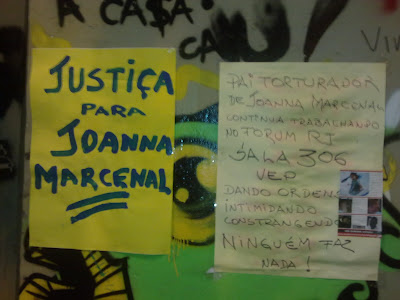 A CASA!
CAIU!
JUSTIÇA
PARA
JOANNA
MARCENAL
PAI TORTURADOR
DE JOANNA MARCENAL
CONTINUA TRABALHANDO
NO FORUM RJ
SALA 306
VEP
DANDO ORDENS
INTIMIDANDO
CONSTRANGENDO
NINGUÉM FAZ
NADA!